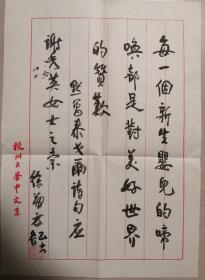 每一個新生嬰兒的啼
喚都是對美好世界
的贊歎
默寫泰戈爾詩句應
謝秀英女士之索
杭州大學中文系